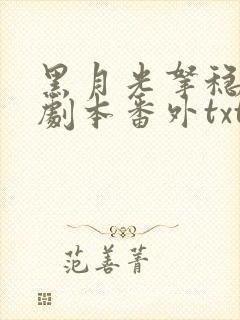 黑月光拏稳
劇本番外txt
范善菁